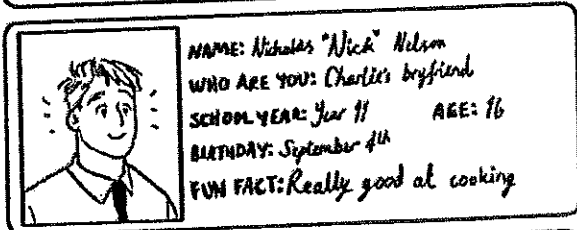 NAME: Nicholas "Nick" Nelson
WHO ARE YOU: Charlie's boyfriend
SCHOOL YEAR: Year 11 AGE: 16
BIRTHDAY: September 4th
FUN FACT: Really good at cooking